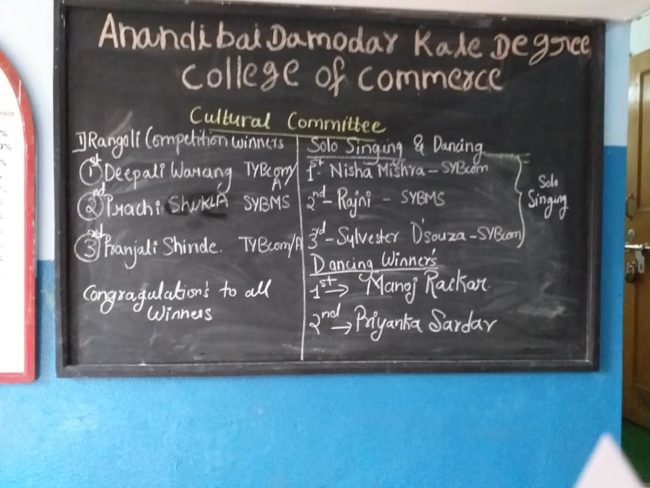 Anandibai Damodar Kale Degree
College of Commerce
Cultural Committee
1) Rangoli Competition winners
1st Deepali Warang TYBcom/A
2nd Prachi SHUKLA SYBMS
3rd Pranjali Shinde. TYBcom/A
Congragulation's to all
Winners
Solo Singing & Dancing
1st - Nisha Mishra - SYBcom
2nd - Rajni - SYBMS
3rd - Sylvester D'souza - SYBcom
Solo
Singing
Dancing Winners
1st → Manoj Kackar
2nd → Priyanka Sardar